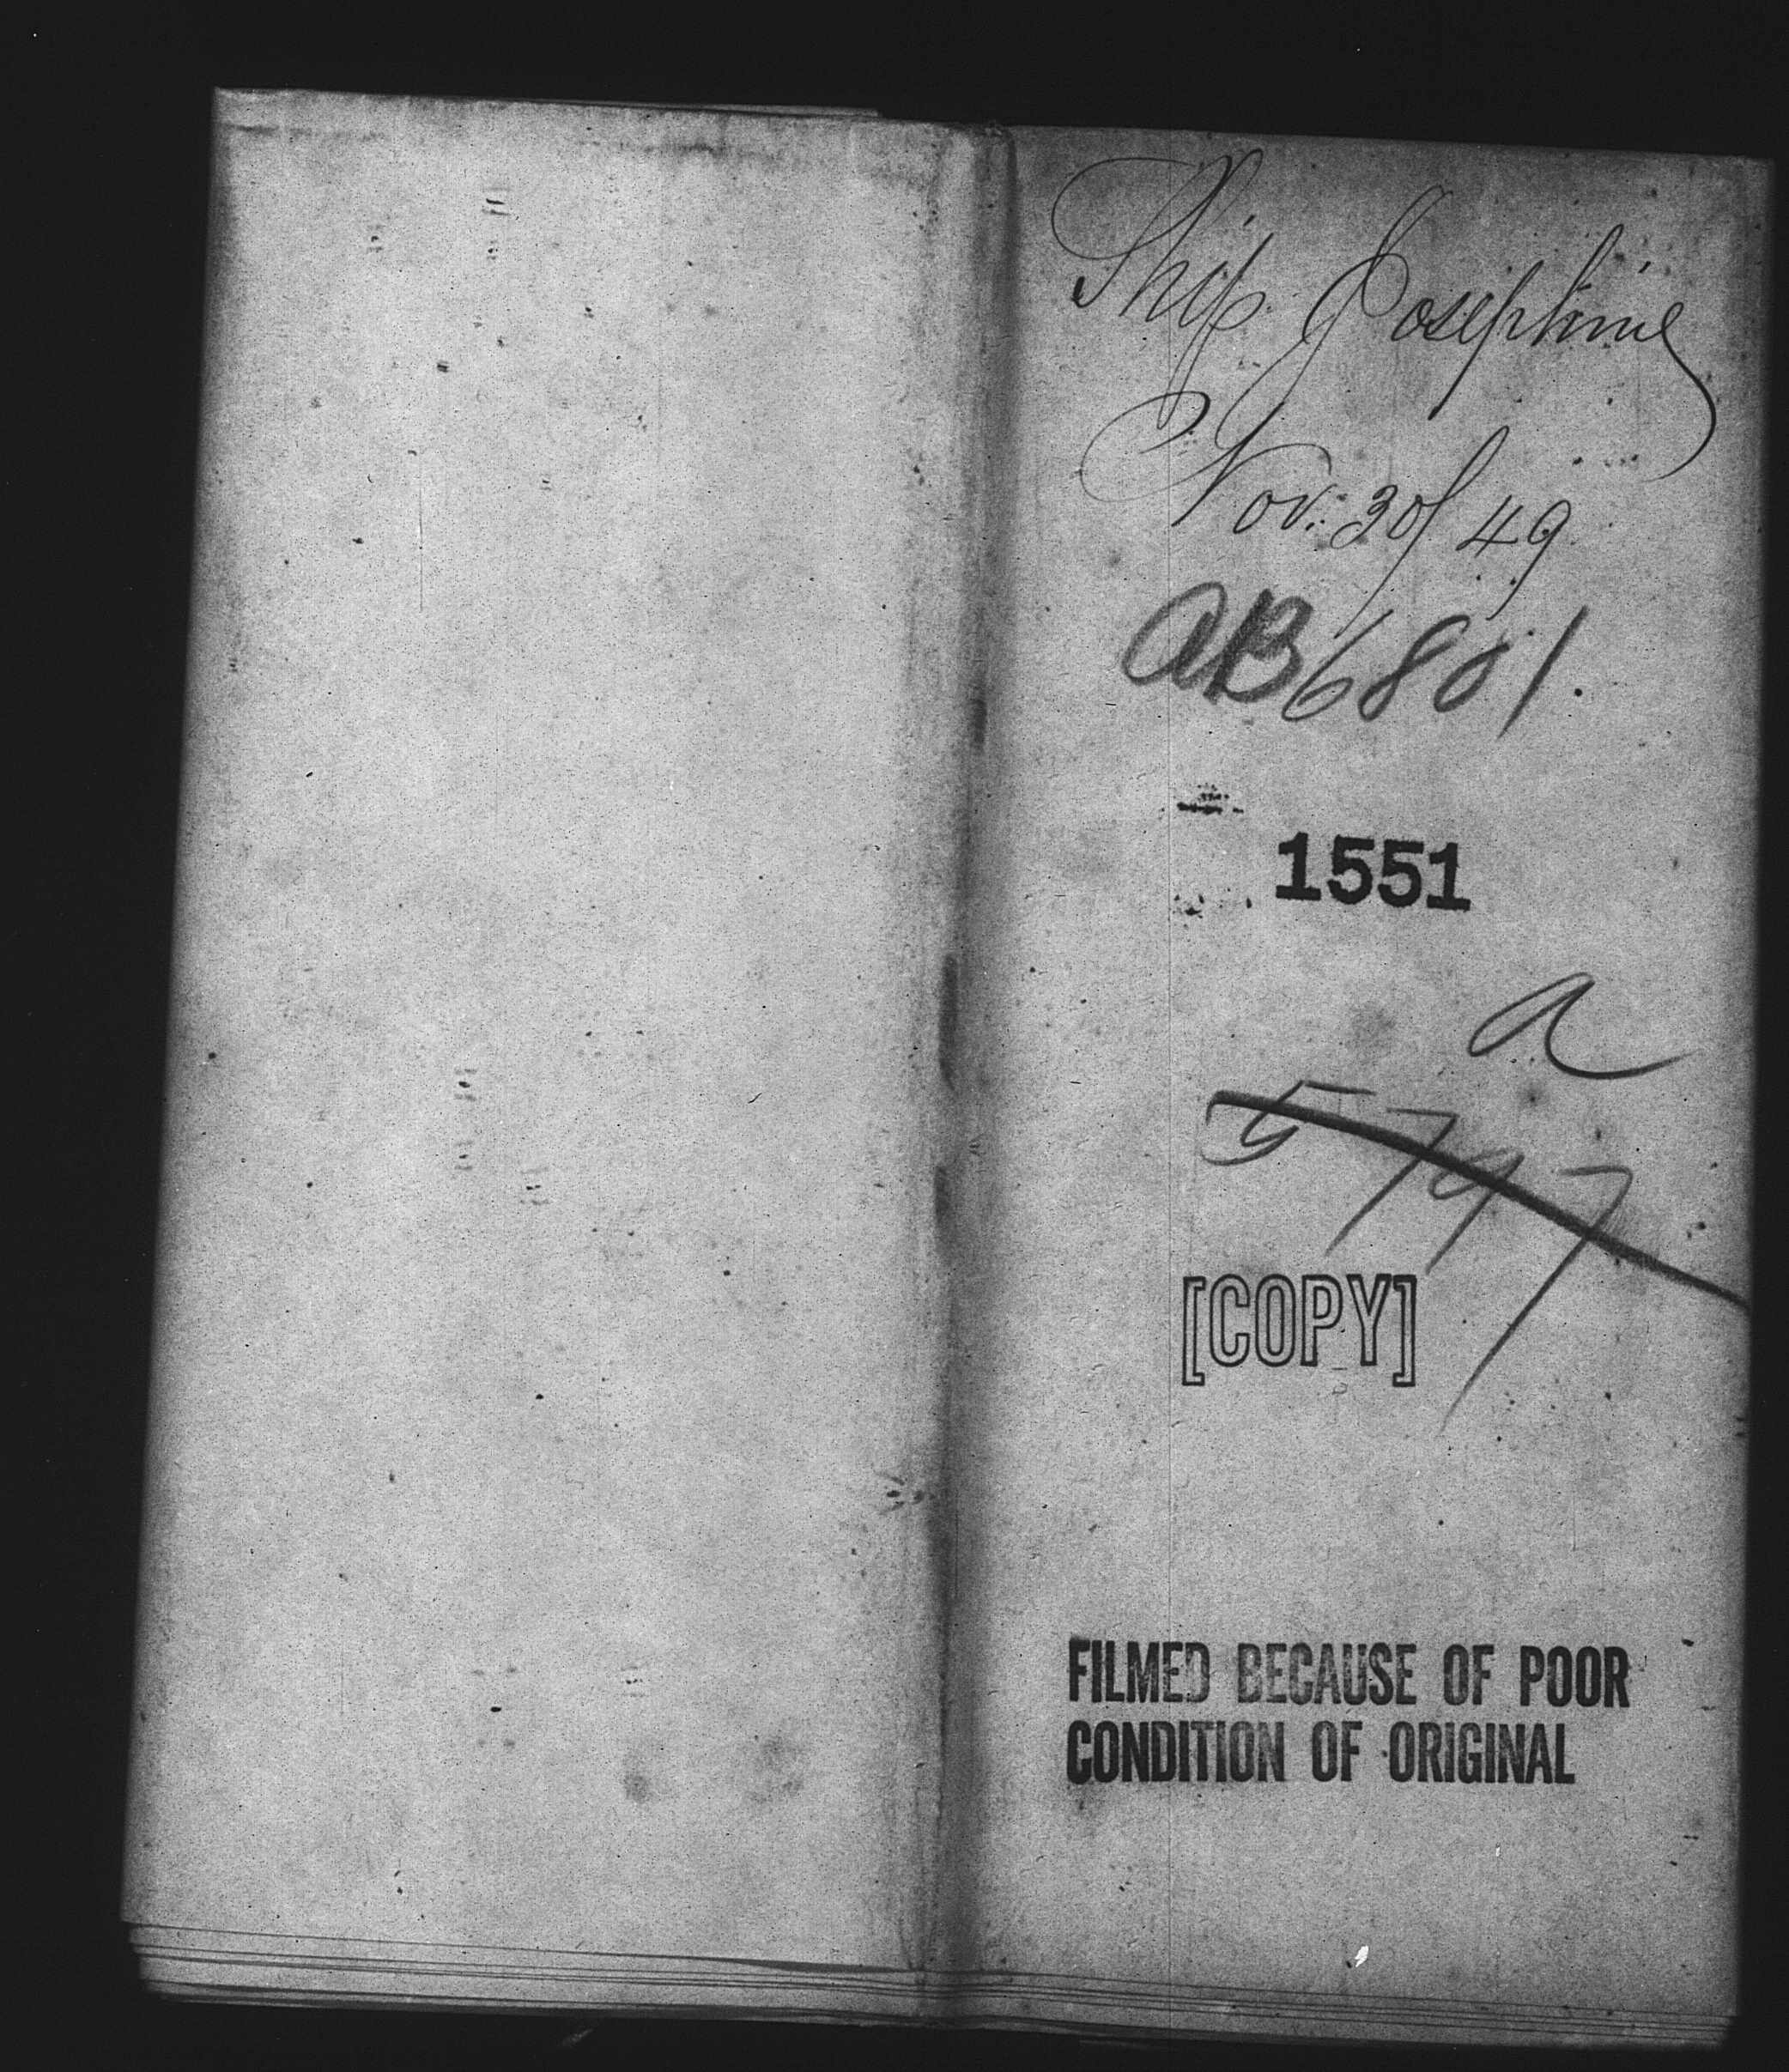 Ship Josephine
Nov. 30/49
AB6801.
1551
a
5797
[COPY]
FILMED BECAUSE OF POOR
CONDITION OF ORIGINAL